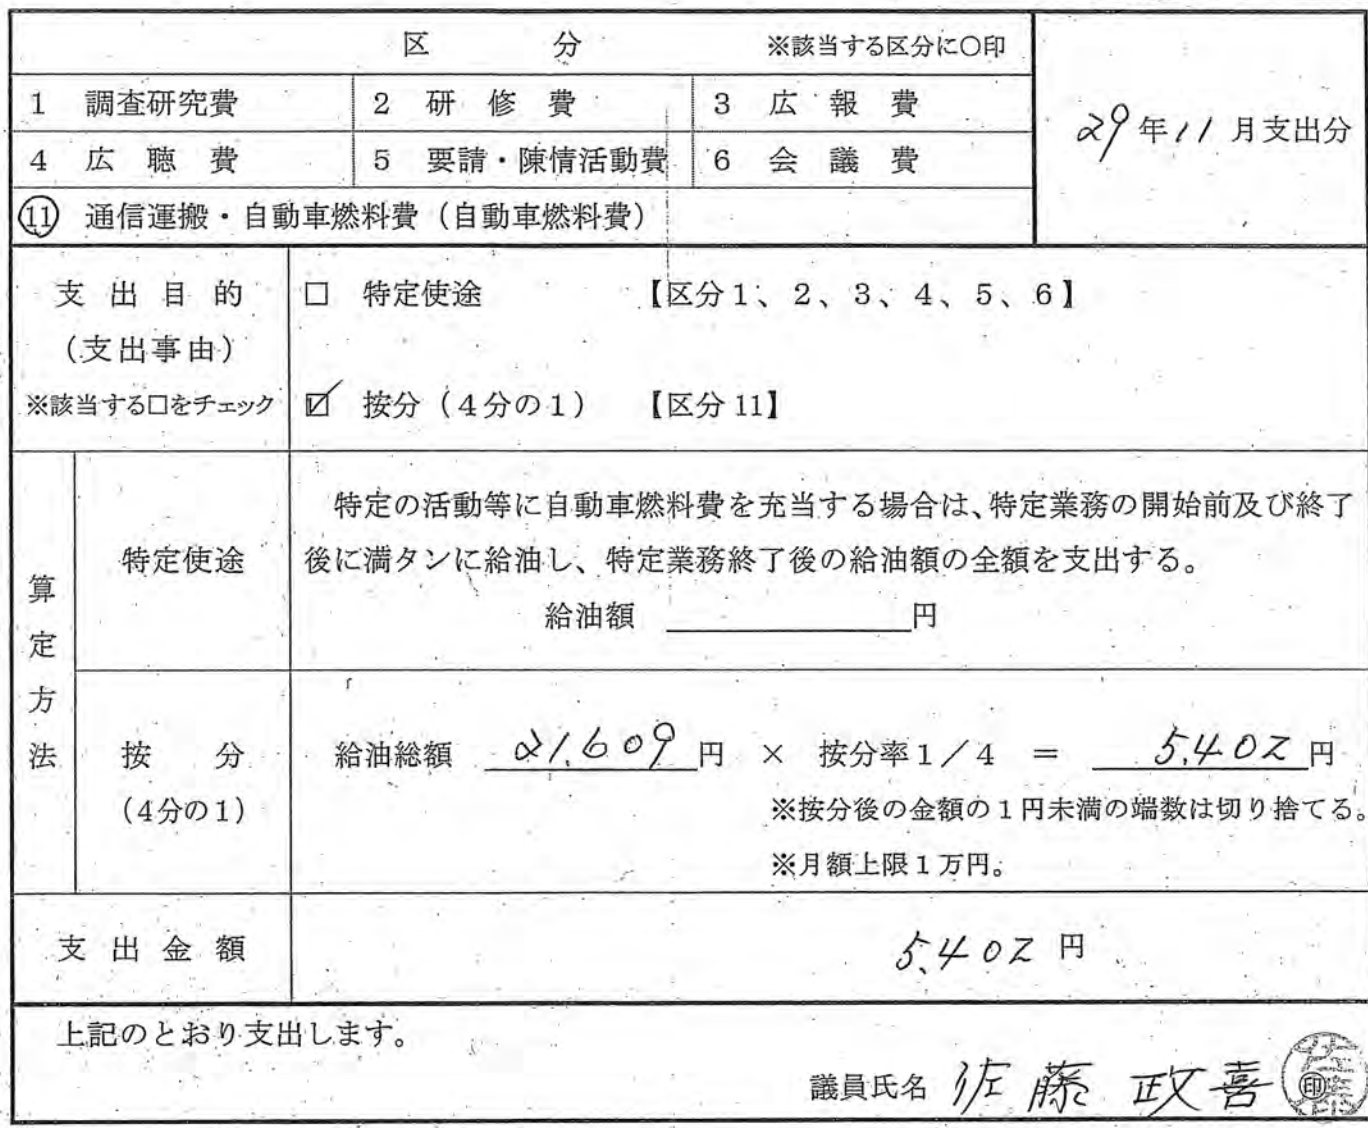 区 分 ※該当する区分に○印
1 調査研究費 2 研修費 3 広報費
29年11月支出分
4 広聴費 5 要請・陳情活動費 6 会議費
⑪ 通信運搬・自動車燃料費(自動車燃料費)
支出目的 □ 特定使途 【区分1、2、3、4、5、6】
(支出事由)
※該当する□をチェック ☑ 按分(4分の1) 【区分11】
算定方法
特定使途
特定の活動等に自動車燃料費を充当する場合は、特定業務の開始前及び終了
後に満タンに給油し、特定業務終了後の給油額の全額を支出する。
給油額 円
按分
(4分の1)
給油総額 21,609円 × 按分率1/4 = 5,402円
※按分後の金額の1円未満の端数は切り捨てる。
※月額上限1万円。
支出金額 5,402円
上記のとおり支出します。
議員氏名 佐藤 政喜 ㊞
佐藤